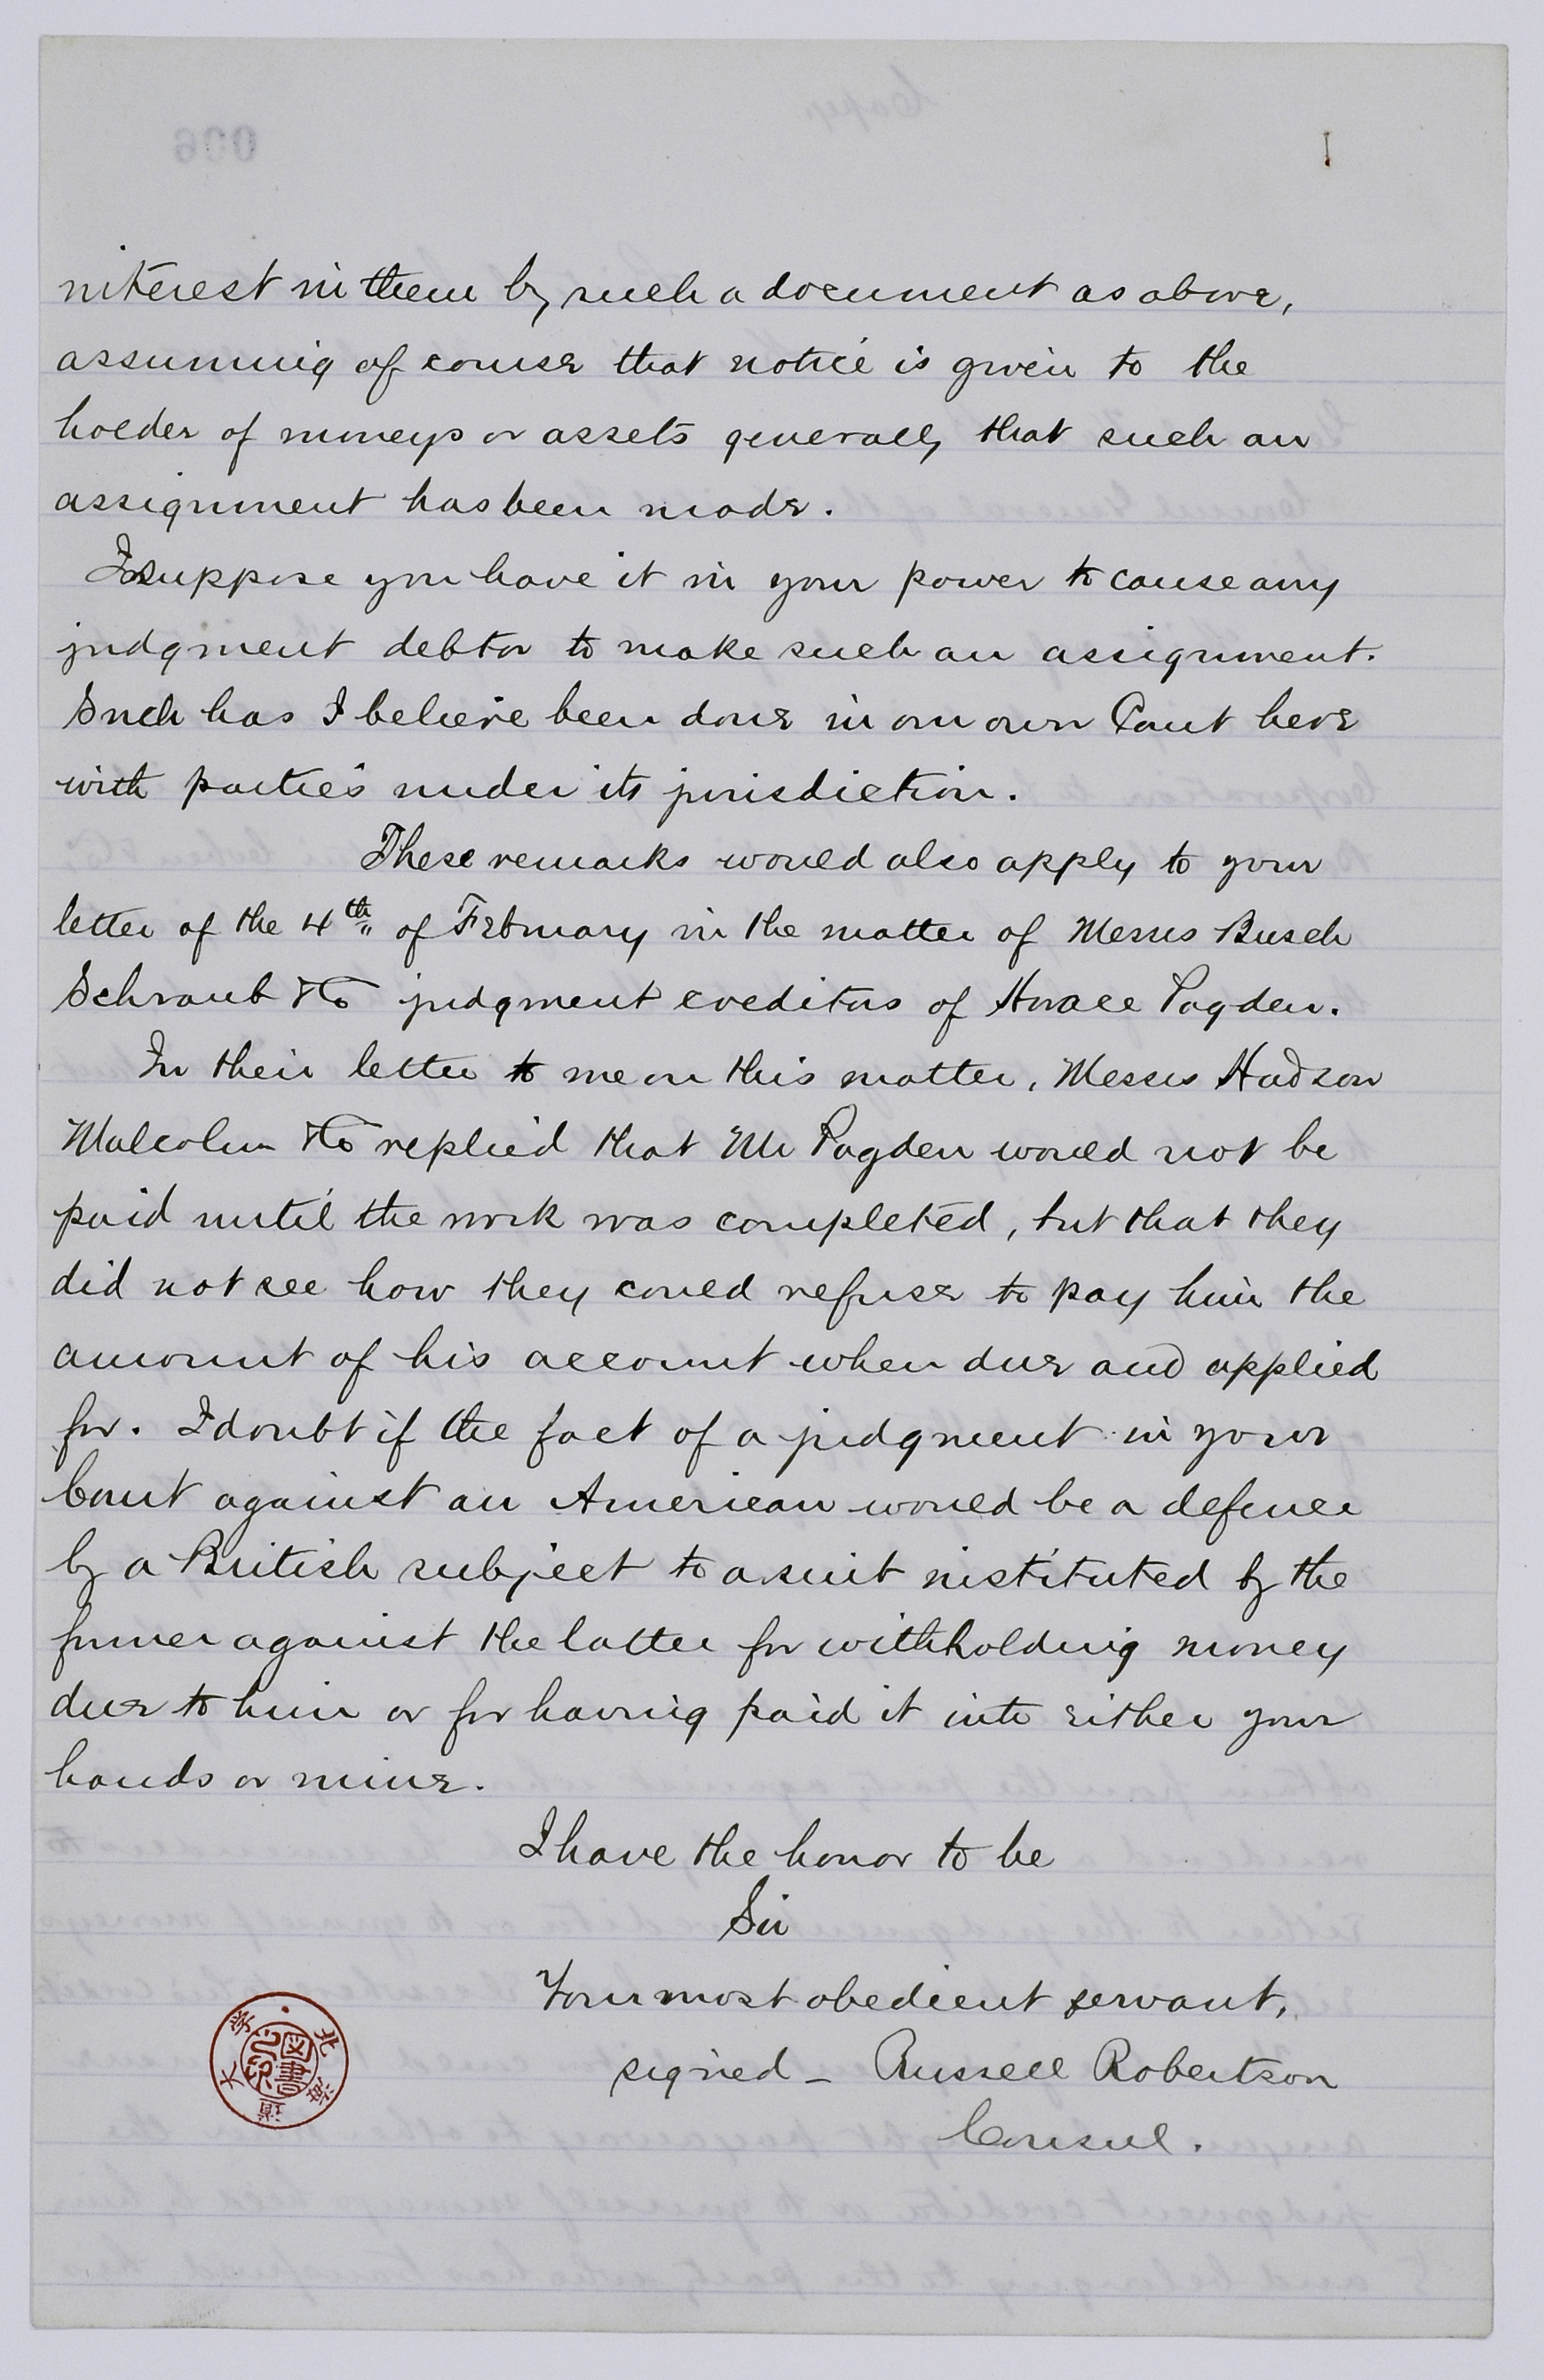 interest in them by such a document as above,
assuming of course that notice is given to the
holder of moneys or assets generally that such an
assignment has been made.
I suppose you have it in your power to cause any
judgment debtor to make such an assignment.
Such has I believe been done in our own Court here
with parties under its jurisdiction.
These remarks would also apply to your
letter of the 4th of February in the matter of Messrs Busch
Schraub & Co judgment creditors of Horace Pagden.
In their letter to me on this matter, Messrs Hudson
Malcolm & Co replied that Mr Pagden would not be
paid until the work was completed, but that they
did not see how they could refuse to pay him the
amount of his account when due and applied
for. I doubt if the fact of a judgment in your
Court against an American would be a defence
by a British subject to a suit instituted by the
former against the latter for withholding money
due to him or for having paid it into either your
hands or mine.
I have the honor to be
Sir
Your most obedient servant,
signed - Russell Robertson
Consul.